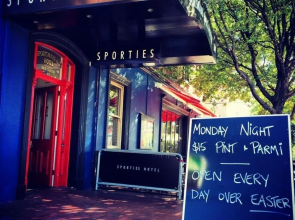 SPORTIES
SPORTIES HOTEL
MONDAY NIGHT
$15 PINT & PARMI
OPEN EVERY
DAY OVER EASTER